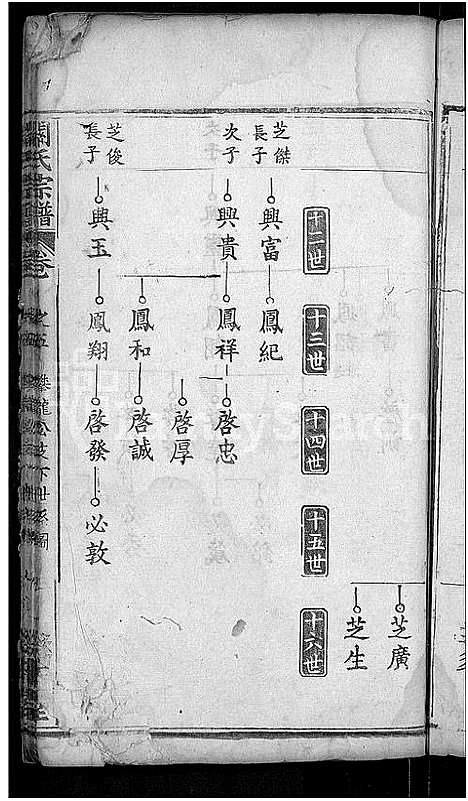 芝廣
芝生
十二世
十三世
十四世
十五世
十六世
芝傑
長子
興富
鳳紀
次子
興貴
鳳祥
啓忠
啓厚
鳳和
啓誠
芝俊
長子
興玉
鳳翔
啓發
必敦
氏宗譜
卷
之五
攀龍公支下世系圖